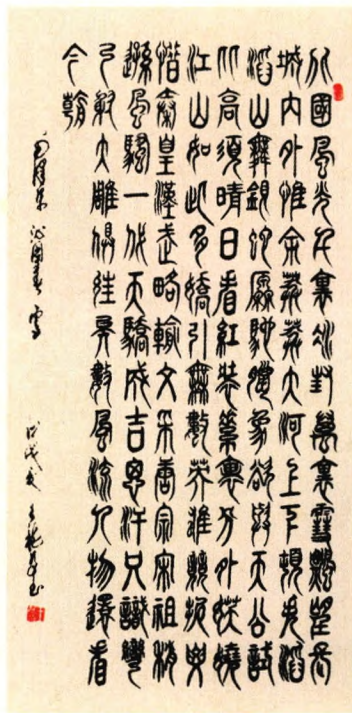 北國風光千裏冰封萬裏雪飄望長
城內外惟余莽莽大河上下頓失滔
滔山舞銀蛇原馳蠟象欲與天公試
比高須晴日看紅裝素裹分外妖嬈
江山如此多嬌引無數英雄競折腰
惜秦皇漢武略輸文采唐宗宋祖稍
遜風騷一代天驕成吉思汗只識彎
弓射大雕俱往矣數風流人物還看
今朝
毛澤東 沁園春 雪
戊戌